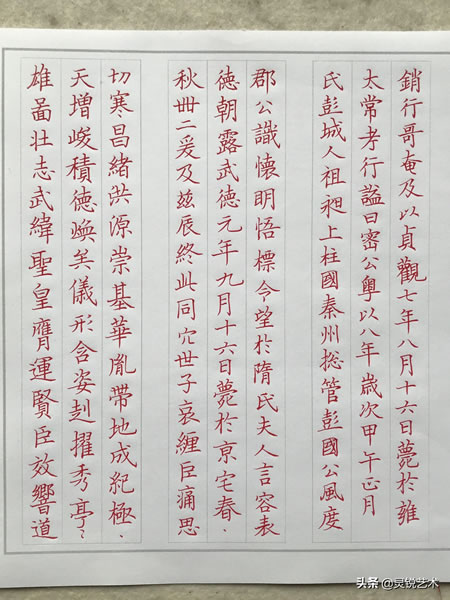 銷行哥奄及以貞觀七年八月十六日薨於雍
太常考行謚曰密公粵以八年歲次甲午正月
氏彭城人祖昶上柱國秦州捴管彭國公風度
郡公識懷明悟標令望於隋氏夫人言容表
德朝露武德元年九月十六日薨於京宅春、
秋卌二爰及玆辰終此同穴世子哀纏臣痛思
切寒昌緒洪源崇基華胤帶地成紀極、
天增峻積德煥矣儀形含姿擢秀亭、
雄啚壯志武緯聖皇膺運賢臣效響道
头条 @灵锐艺术